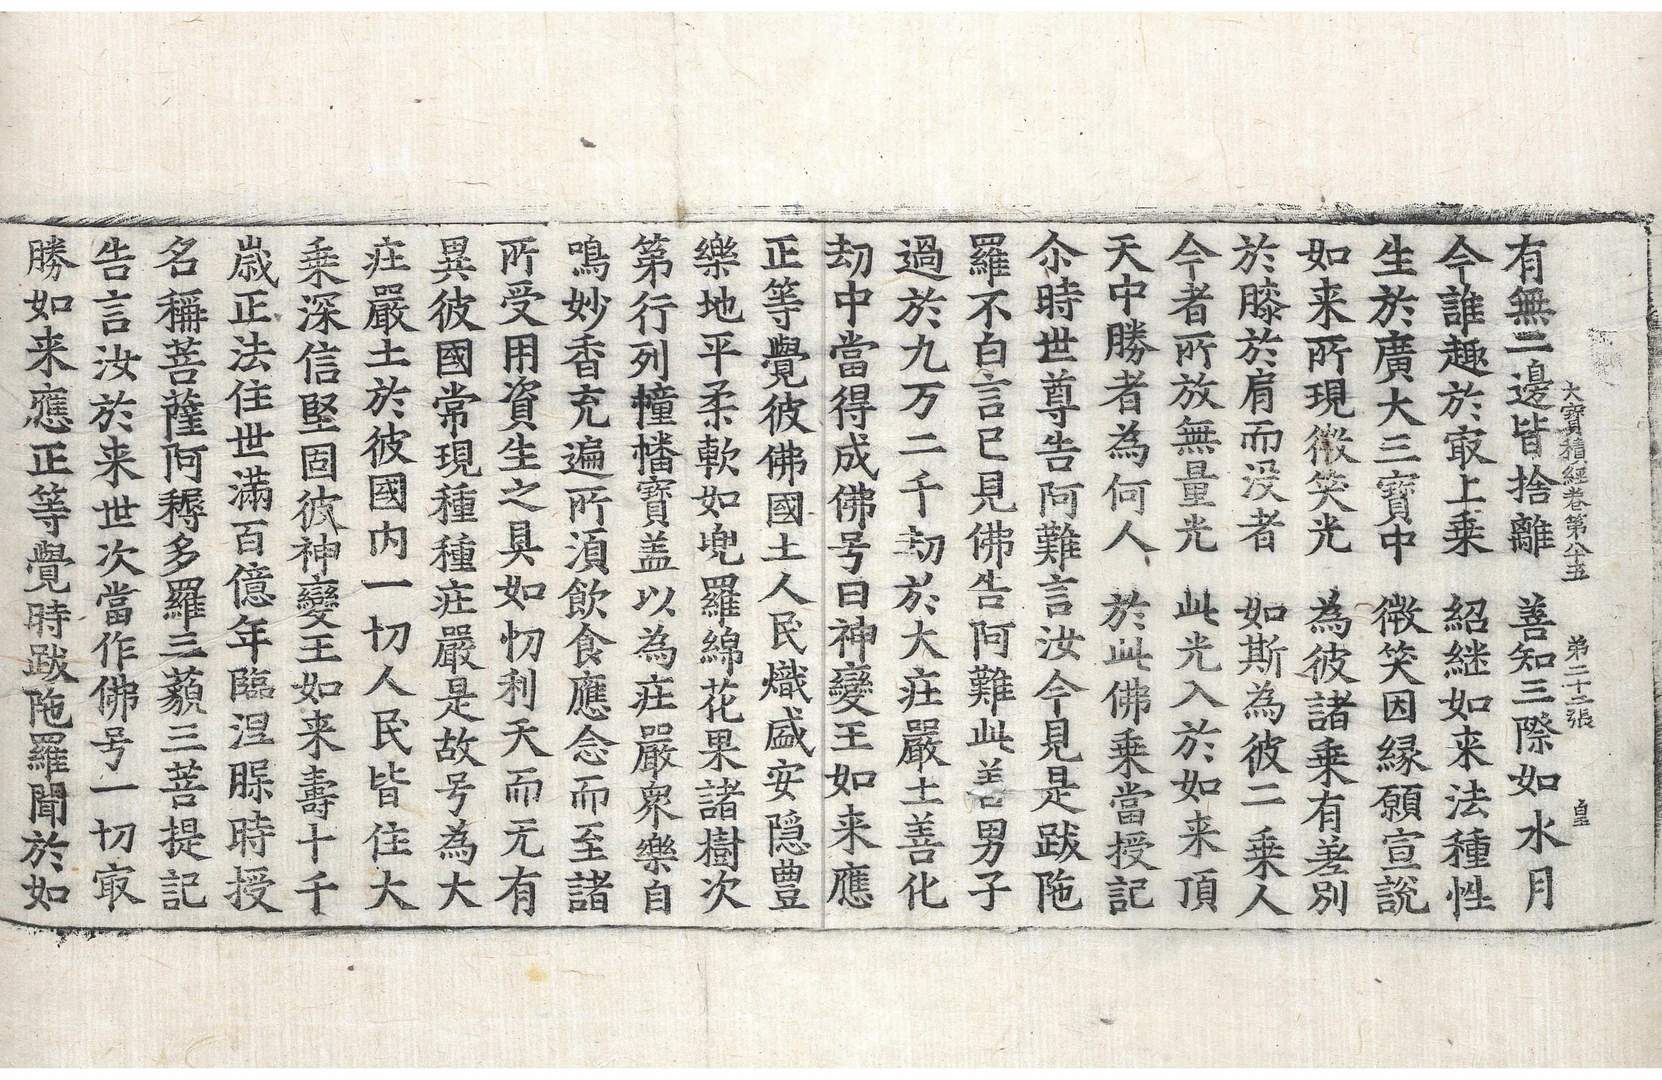 大寶積經卷第八十五　第二十三張　皇
有無二邊皆捨離　善知三際如水月
今誰趣於㝡上乗　紹継如来法種性
生於廣大三寶中　微笑因縁願宣說
如来所現微笑光　為彼諸乗有差別
於膝於肩而没者　如斯為彼二乗人
今者所放無量光　此光入於如来頂
天中勝者為何人　於此佛乗當授記
尒時世尊告阿難言汝今見是跋陁
羅不白言已見佛告阿難此善男子
過於九万二千劫於大庄嚴土善化
劫中當得成佛号曰神變王如来應
正等覺彼佛國土人民熾盛安隠豊
樂地平柔軟如兜羅綿花果諸樹次
第行列幢幡寶盖以為庄嚴衆樂自
鳴妙香充遍所湏飲食應念而至諸
所受用資生之具如忉利天而无有
異彼國常現種種庄嚴是故号為大
庄嚴土於彼國内一切人民皆住大
乗深信堅固彼神變王如来壽十千
歳正法住世滿百億年臨涅脲時授
名稱菩薩阿耨多羅三藐三菩提記
告言汝於来世次當作佛号一切㝡
勝如来應正等覺時跋陁羅聞於如